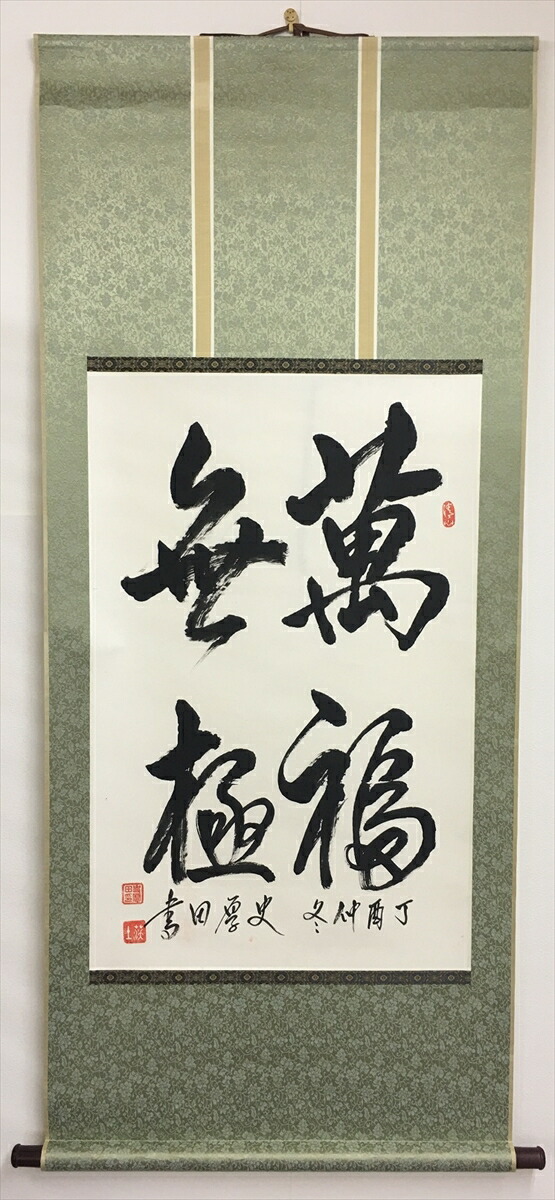 萬福
無極
丁酉仲冬 史厚田書